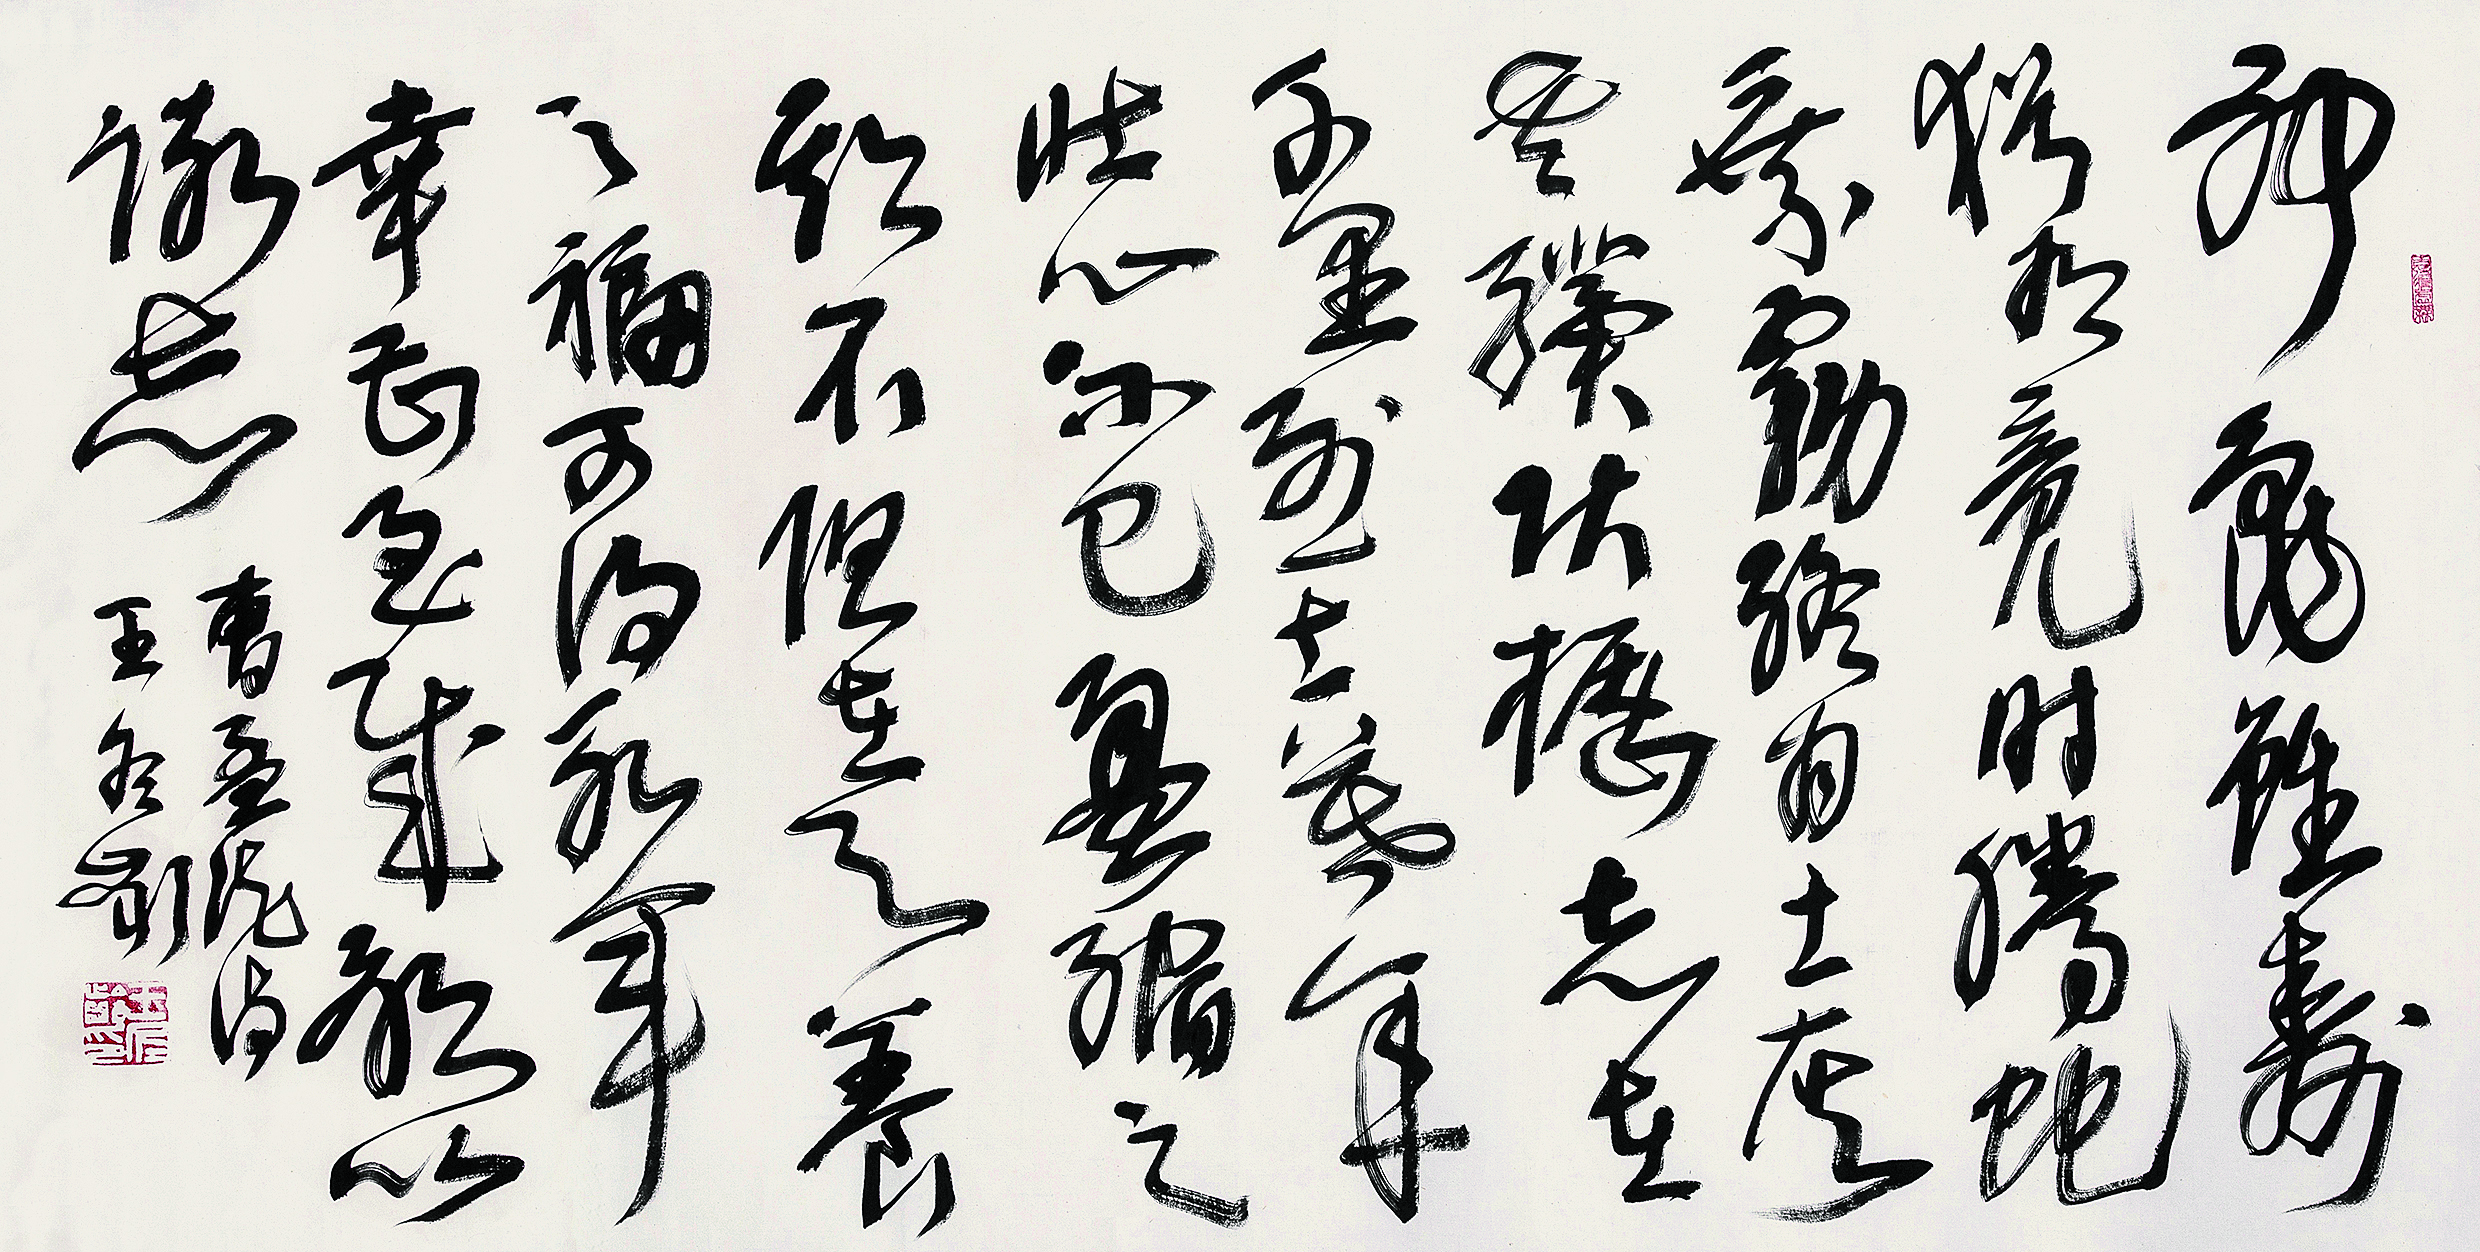 神龜雖壽
猶有竟时騰蛇
乘霧終为土灰
老驥伏櫪志在
千里烈士暮年
壯心不已盈縮之
期不但在天養
之福可得永年
幸甚至哉歌以
詠志
曹孟德诗
王冬齡